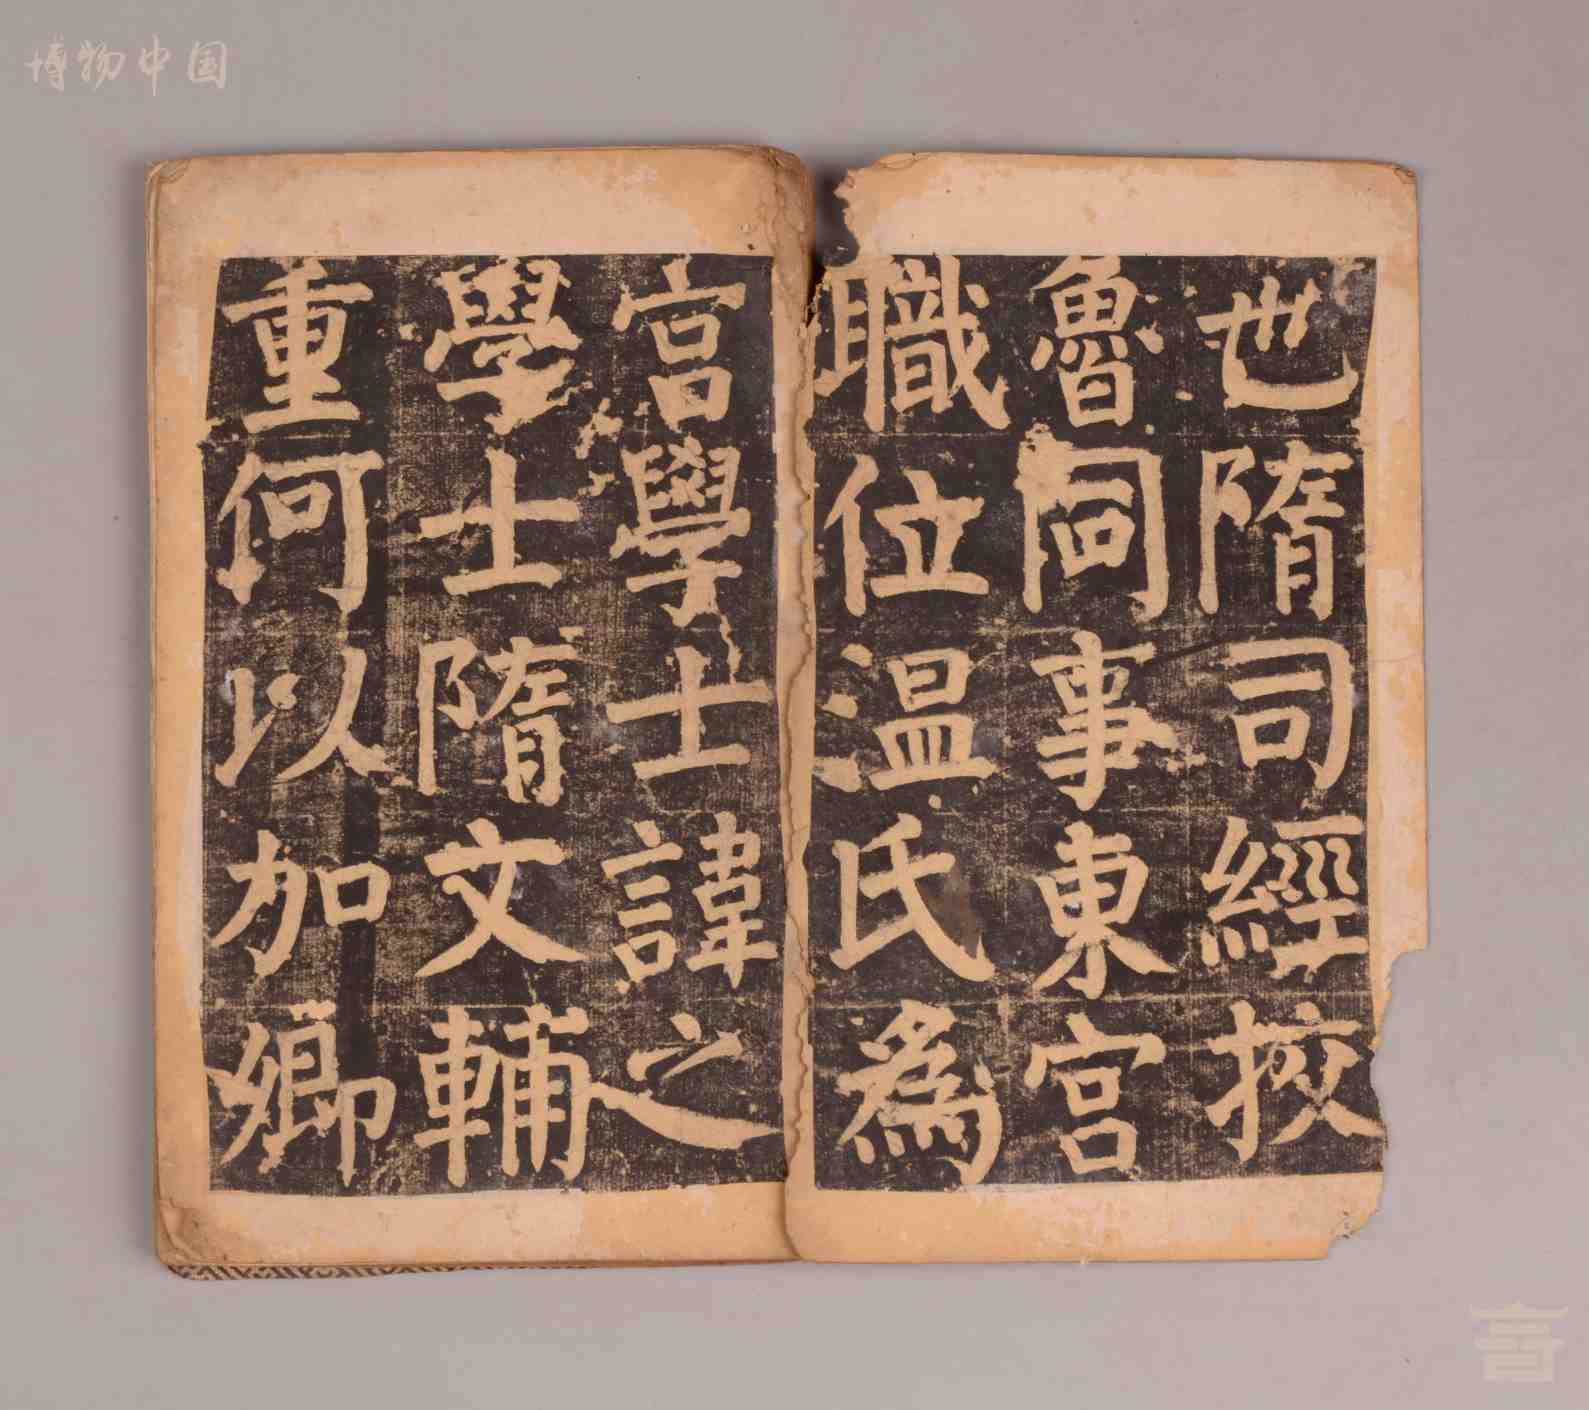 博物中国
也隋司經挍
魯同事東宮
職位温氏為
宮學士諱之
學士隋文輔
重何以加卿